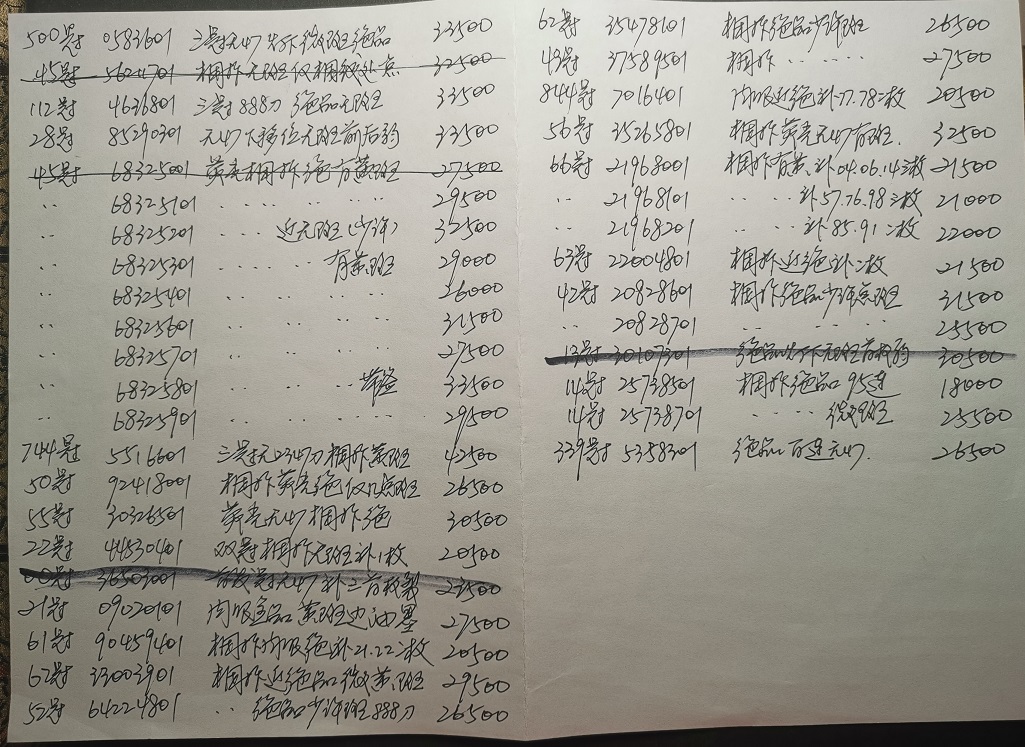 500冠 0583601 三冠无47 尖下微班绝品 33500
45冠 56211701 相外无班仅相 32500
112冠 4636801 三冠888刀 绝品无班 33500
28冠 85290301 无47下移位无班前后 33500
45冠 68325001 荧亮相外绝有黄班 27500
‥ 68325101 ‥ ‥ ‥ ‥ 29500
‥ 68325201 近无班(少许) 32500
‥ 68325301 ‥ ‥ ‥ 有黄班 29000
‥ 68325401 ‥ ‥ ‥ ‥ 26000
‥ 68325601 ‥ ‥ ‥ ‥ 31500
‥ 68325701 ‥ ‥ ‥ ‥ 27500
‥ 68325801 ‥ ‥ ‥ 33500
‥ 68325901 ‥ ‥ ‥ ‥ 29500
744冠 5516601 三冠无2347刀相外黄班 42500
50冠 92418001 相外荧亮绝仅几点班 26500
55冠 30326501 荧亮无47相外绝 30500
22冠 44530401 双冠相外无班补1枚 20500
00冠 36503001 冠无47补三首枚裂 23500
21冠 09020101 品黄班边油墨 27500
61冠 90459401 相外绝补21.22二枚 20500
62冠 33003901 相外近绝品微黄班 29500
52冠 64224801 ‥ 绝品少许班888刀 26500
62冠 35478101 相外绝品少许班 26500
43冠 37589501 相外 ‥ ‥ ‥ 27500
844冠 7016401 近绝补77.78二枚 20500
56冠 35265801 相外荧亮无47有班. 32500
66冠 21968001 相外有黄、补04.06.14三枚 21500
‥ 21968101 ‥ ‥ 补57.76.98三枚 21000
‥ 21968201 ‥ ‥ 补85.91二枚 22000
63冠 22004801 相外近绝补二枚 21500
42冠 20828601 相外绝品少许点班 31500
‥ 20828701 ‥ ‥ ‥ ‥ 25500
13冠 30107301 绝品尖下无班首枚 30500
14冠 25738501 相外绝品95连 18000
14冠 25738701 ‥ ‥ 微班 25500
339冠 5358301 绝品百连无47. 26500